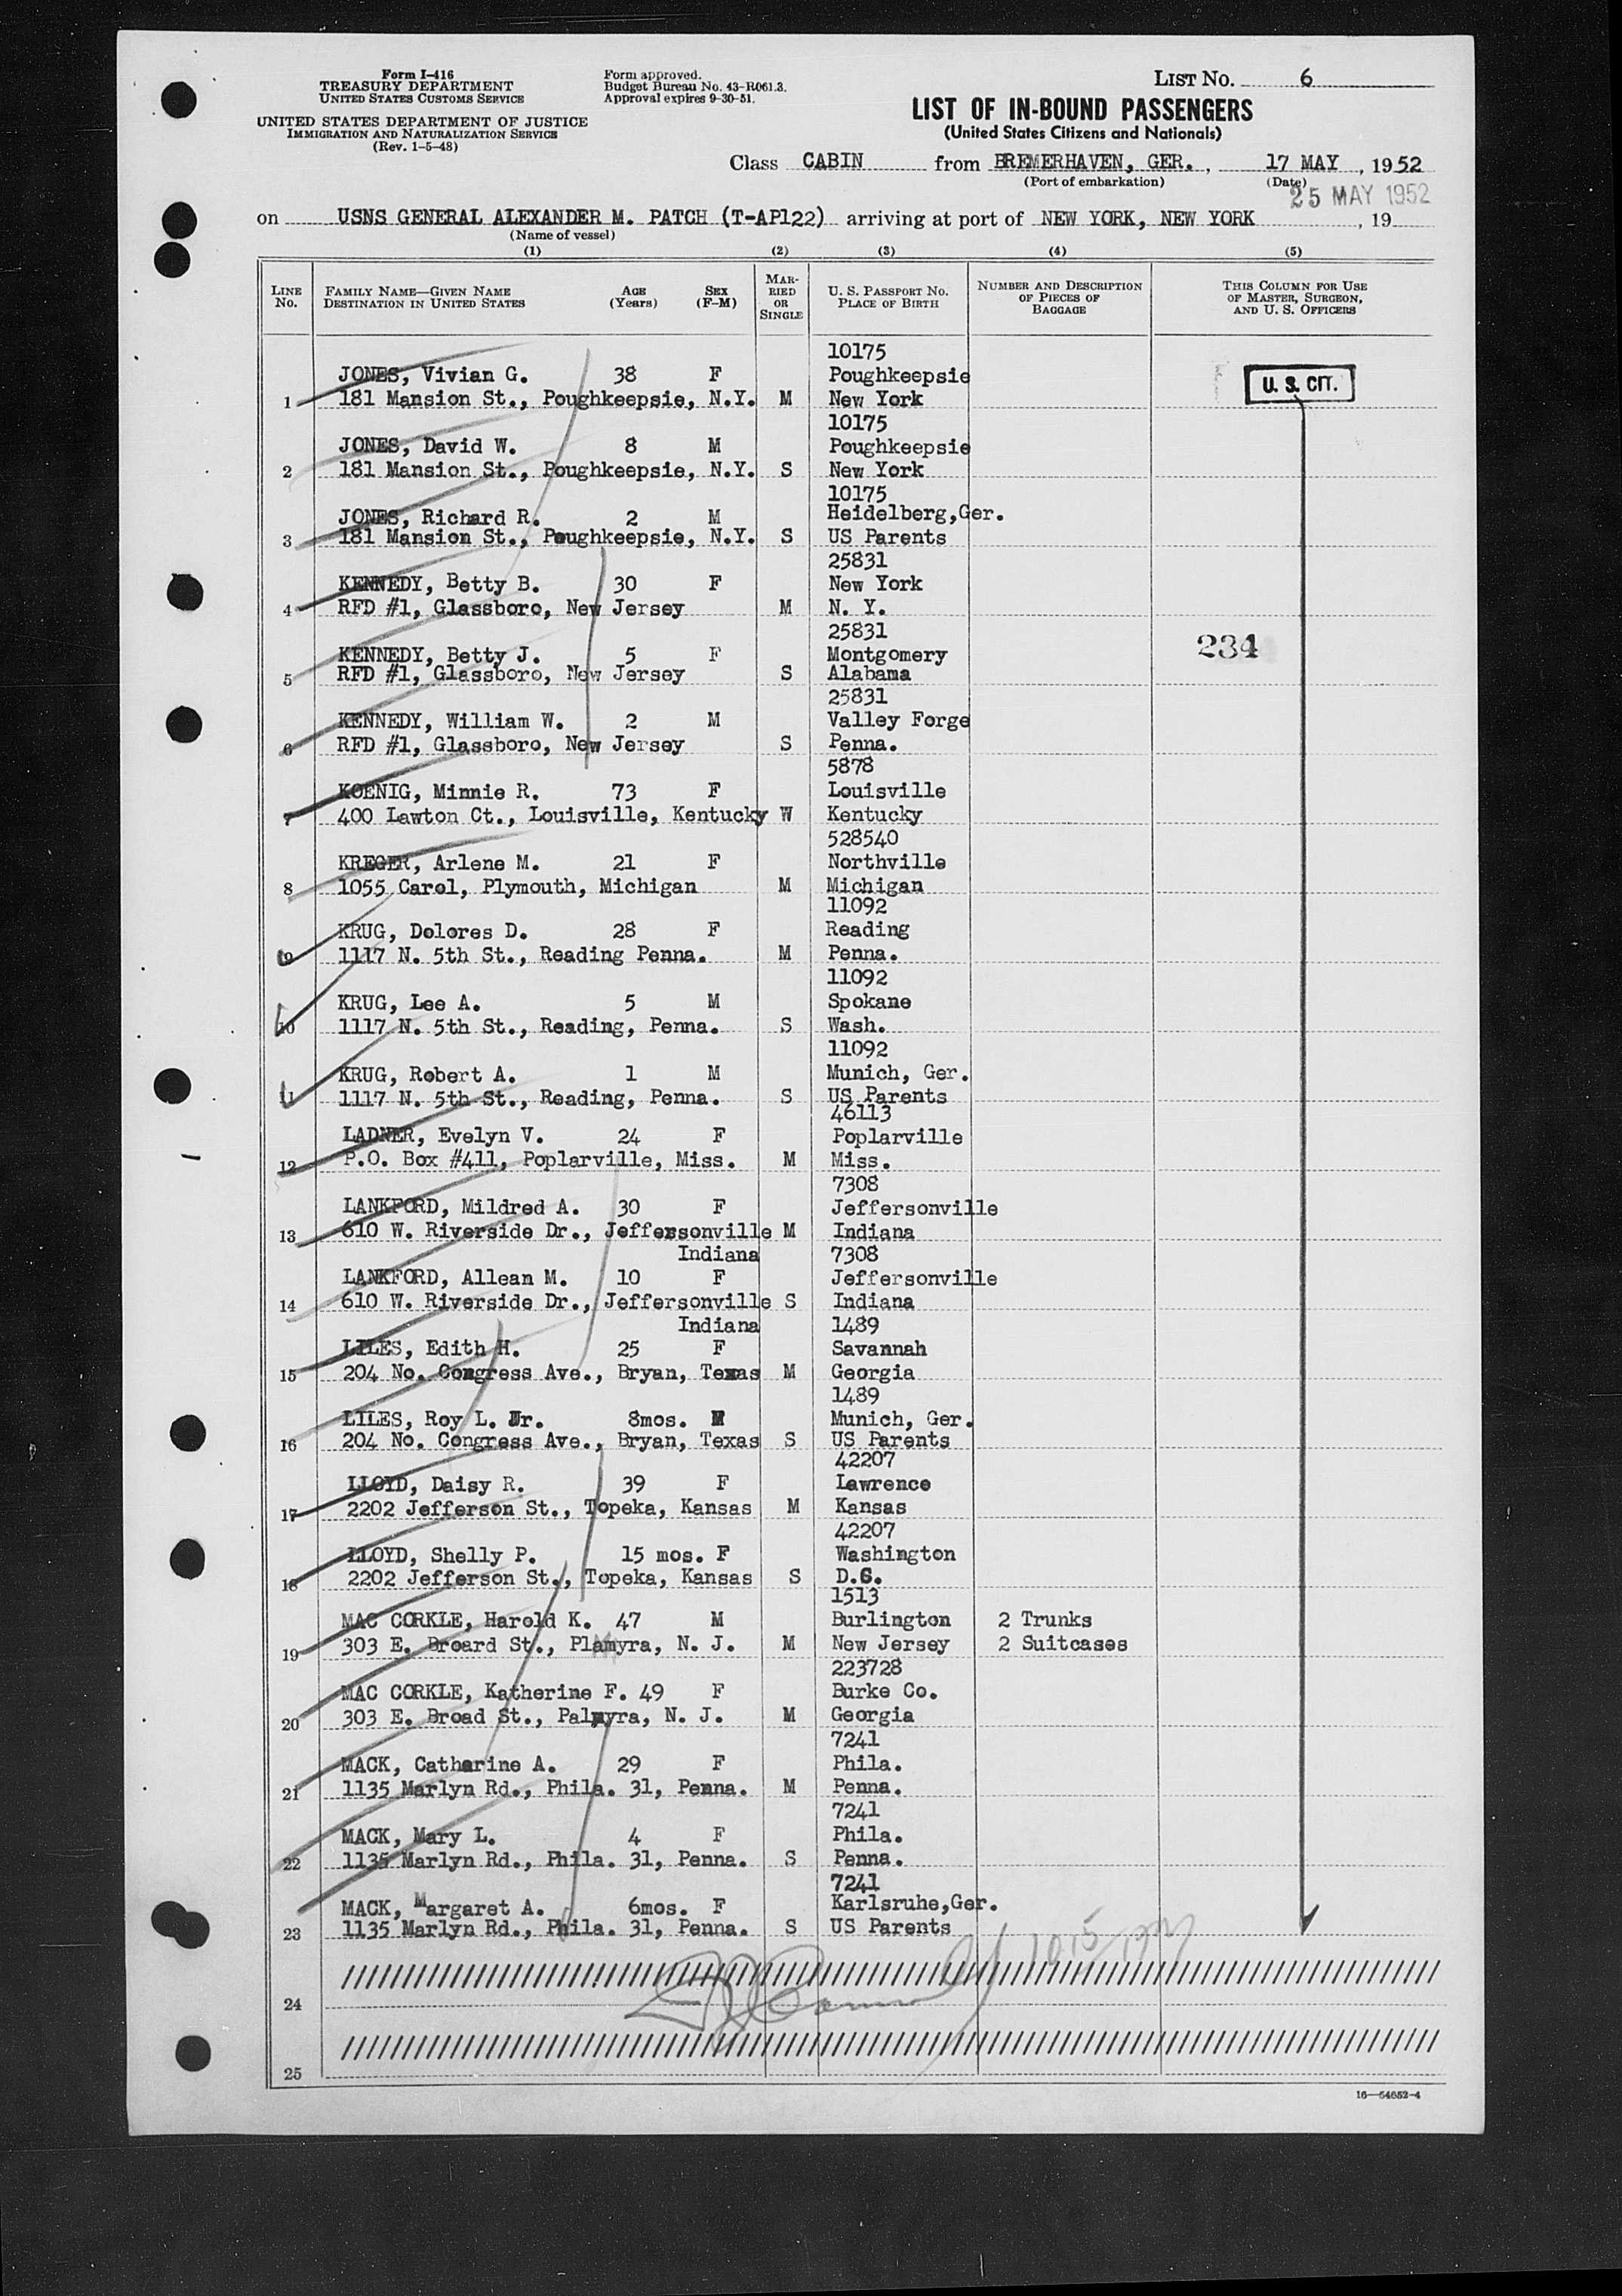 Form I-416
TREASURY DEPARTMENT
UNITED STATES CUSTOMS SERVICE
UNITED STATES DEPARTMENT OF JUSTICE
IMMIGRATION AND NATURALIZATION SERVICE
(Rev. 1-5-48)
Form approved.
Budget Bureau No. 43-R061.3.
Approval expires 9-30-51.
LIST NO. 6
LIST OF IN-BOUND PASSENGERS
(United States Citizens and Nationals)
Class CABIN from BREMERHAVEN, GER., 17 MAY, 1952
(Port of embarkation) (Date)
25 MAY 1952
on USNS GENERAL ALEXANDER M. PATCH (T-AP122) arriving at port of NEW YORK, NEW YORK, 19
(Name of vessel)
(1) (2) (3) (4) (5)
LINE No. FAMILY NAME—GIVEN NAME DESTINATION IN UNITED STATES AGE (Years) SEX (F-M) MARRIED OR SINGLE U. S. PASSPORT NO. PLACE OF BIRTH NUMBER AND DESCRIPTION OF PIECES OF BAGGAGE THIS COLUMN FOR USE OF MASTER, SURGEON, AND U. S. OFFICERS
10175
JONES, Vivian G. 38 F Poughkeepsie U. S. CIT.
1 181 Mansion St., Poughkeepsie, N.Y. M New York
10175
JONES, David W. 8 M Poughkeepsie
2 181 Mansion St., Poughkeepsie, N.Y. S New York
10175
JONES, Richard R. 2 M Heidelberg,Ger.
3 181 Mansion St., Poughkeepsie, N.Y. S US Parents
25831
KENNEDY, Betty B. 30 F New York
4 RFD #1, Glassboro, New Jersey M N. Y.
25831
KENNEDY, Betty J. 5 F Montgomery 234
5 RFD #1, Glassboro, New Jersey S Alabama
25831
KENNEDY, William W. 2 M Valley Forge
6 RFD #1, Glassboro, New Jersey S Penna.
5878
KOENIG, Minnie R. 73 F Louisville
7 400 Lawton Ct., Louisville, Kentucky W Kentucky
528540
KREGER, Arlene M. 21 F Northville
8 1055 Carol, Plymouth, Michigan M Michigan
11092
KRUG, Dolores D. 28 F Reading
9 1117 N. 5th St., Reading Penna. M Penna.
11092
KRUG, Lee A. 5 M Spokane
10 1117 N. 5th St., Reading, Penna. S Wash.
11092
KRUG, Robert A. 1 M Munich, Ger.
11 1117 N. 5th St., Reading, Penna. S US Parents
46113
LADNER, Evelyn V. 24 F Poplarville
12 P.O. Box #411, Poplarville, Miss. M Miss.
7308
LANKFORD, Mildred A. 30 F Jeffersonville
13 610 W. Riverside Dr., Jeffersonville M Indiana
Indiana 7308
LANKFORD, Allean M. 10 F Jeffersonville
14 610 W. Riverside Dr., Jeffersonville S Indiana
Indiana 1489
LILES, Edith H. 25 F Savannah
15 204 No. Congress Ave., Bryan, Texas M Georgia
1489
LILES, Roy L. Jr. 8mos. M Munich, Ger.
16 204 No. Congress Ave., Bryan, Texas S US Parents
42207
LLOYD, Daisy R. 39 F Lawrence
17 2202 Jefferson St., Topeka, Kansas M Kansas
42207
LLOYD, Shelly P. 15 mos. F Washington
18 2202 Jefferson St., Topeka, Kansas S D.C.
1513
MAC CORKLE, Harold K. 47 M Burlington 2 Trunks
19 303 E. Broard St., Plamyra, N. J. M New Jersey 2 Suitcases
223728
MAC CORKLE, Katherine F. 49 F Burke Co.
20 303 E. Broad St., Palmyra, N. J. M Georgia
7241
MACK, Catharine A. 29 F Phila.
21 1135 Marlyn Rd., Phila. 31, Penna. M Penna.
7241
MACK, Mary L. 4 F Phila.
22 1135 Marlyn Rd., Phila. 31, Penna. S Penna.
7241
MACK, Margaret A. 6mos. F Karlsruhe,Ger.
23 1135 Marlyn Rd., Phila. 31, Penna. S US Parents
24
25
16—54652-4